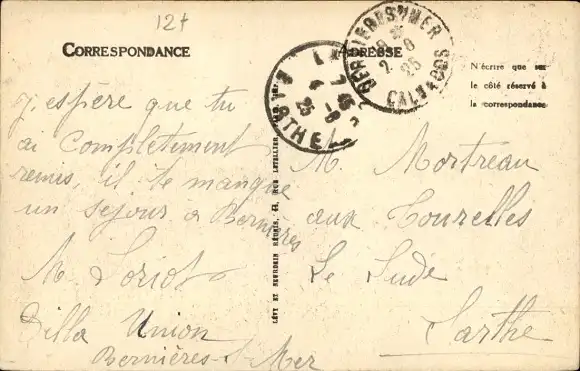 12+
CORRESPONDANCE
ADRESSE
N'écrire que sur
le côté réservé à
la correspondance
BERNIERES S MER
2 - 8
25
CALVADOS
LE
7 45
4 - 8
25
SARTHE
J'espère que tu
ai complètement
remis, il te manque
un séjour à Bernières
M. Loriot
Villa Union
Bernières-s-Mer
LÉVY ET NEURDEIN RÉUNIS, 44, RUE LETELLIER,
M. Mortreau
aux Tourelles
Le Lude
Sarthe